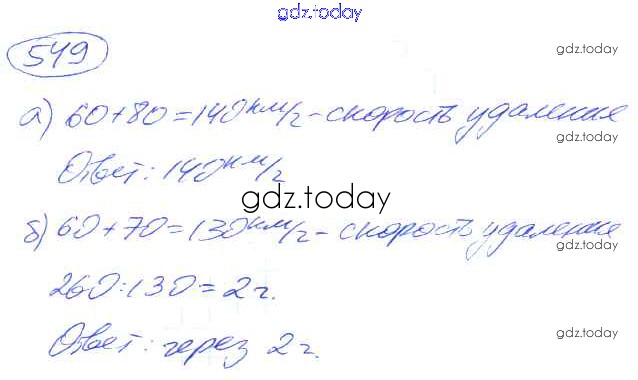 gdz.today
549
gdz.today
а) 60+80=140км/ч-скорость удаления
gdz.today
Ответ: 140км/ч
gdz.today
б) 60+70=130км/ч-скорость удаления
gdz.today
260:130=2ч.
Ответ: через 2ч.
gdz.today